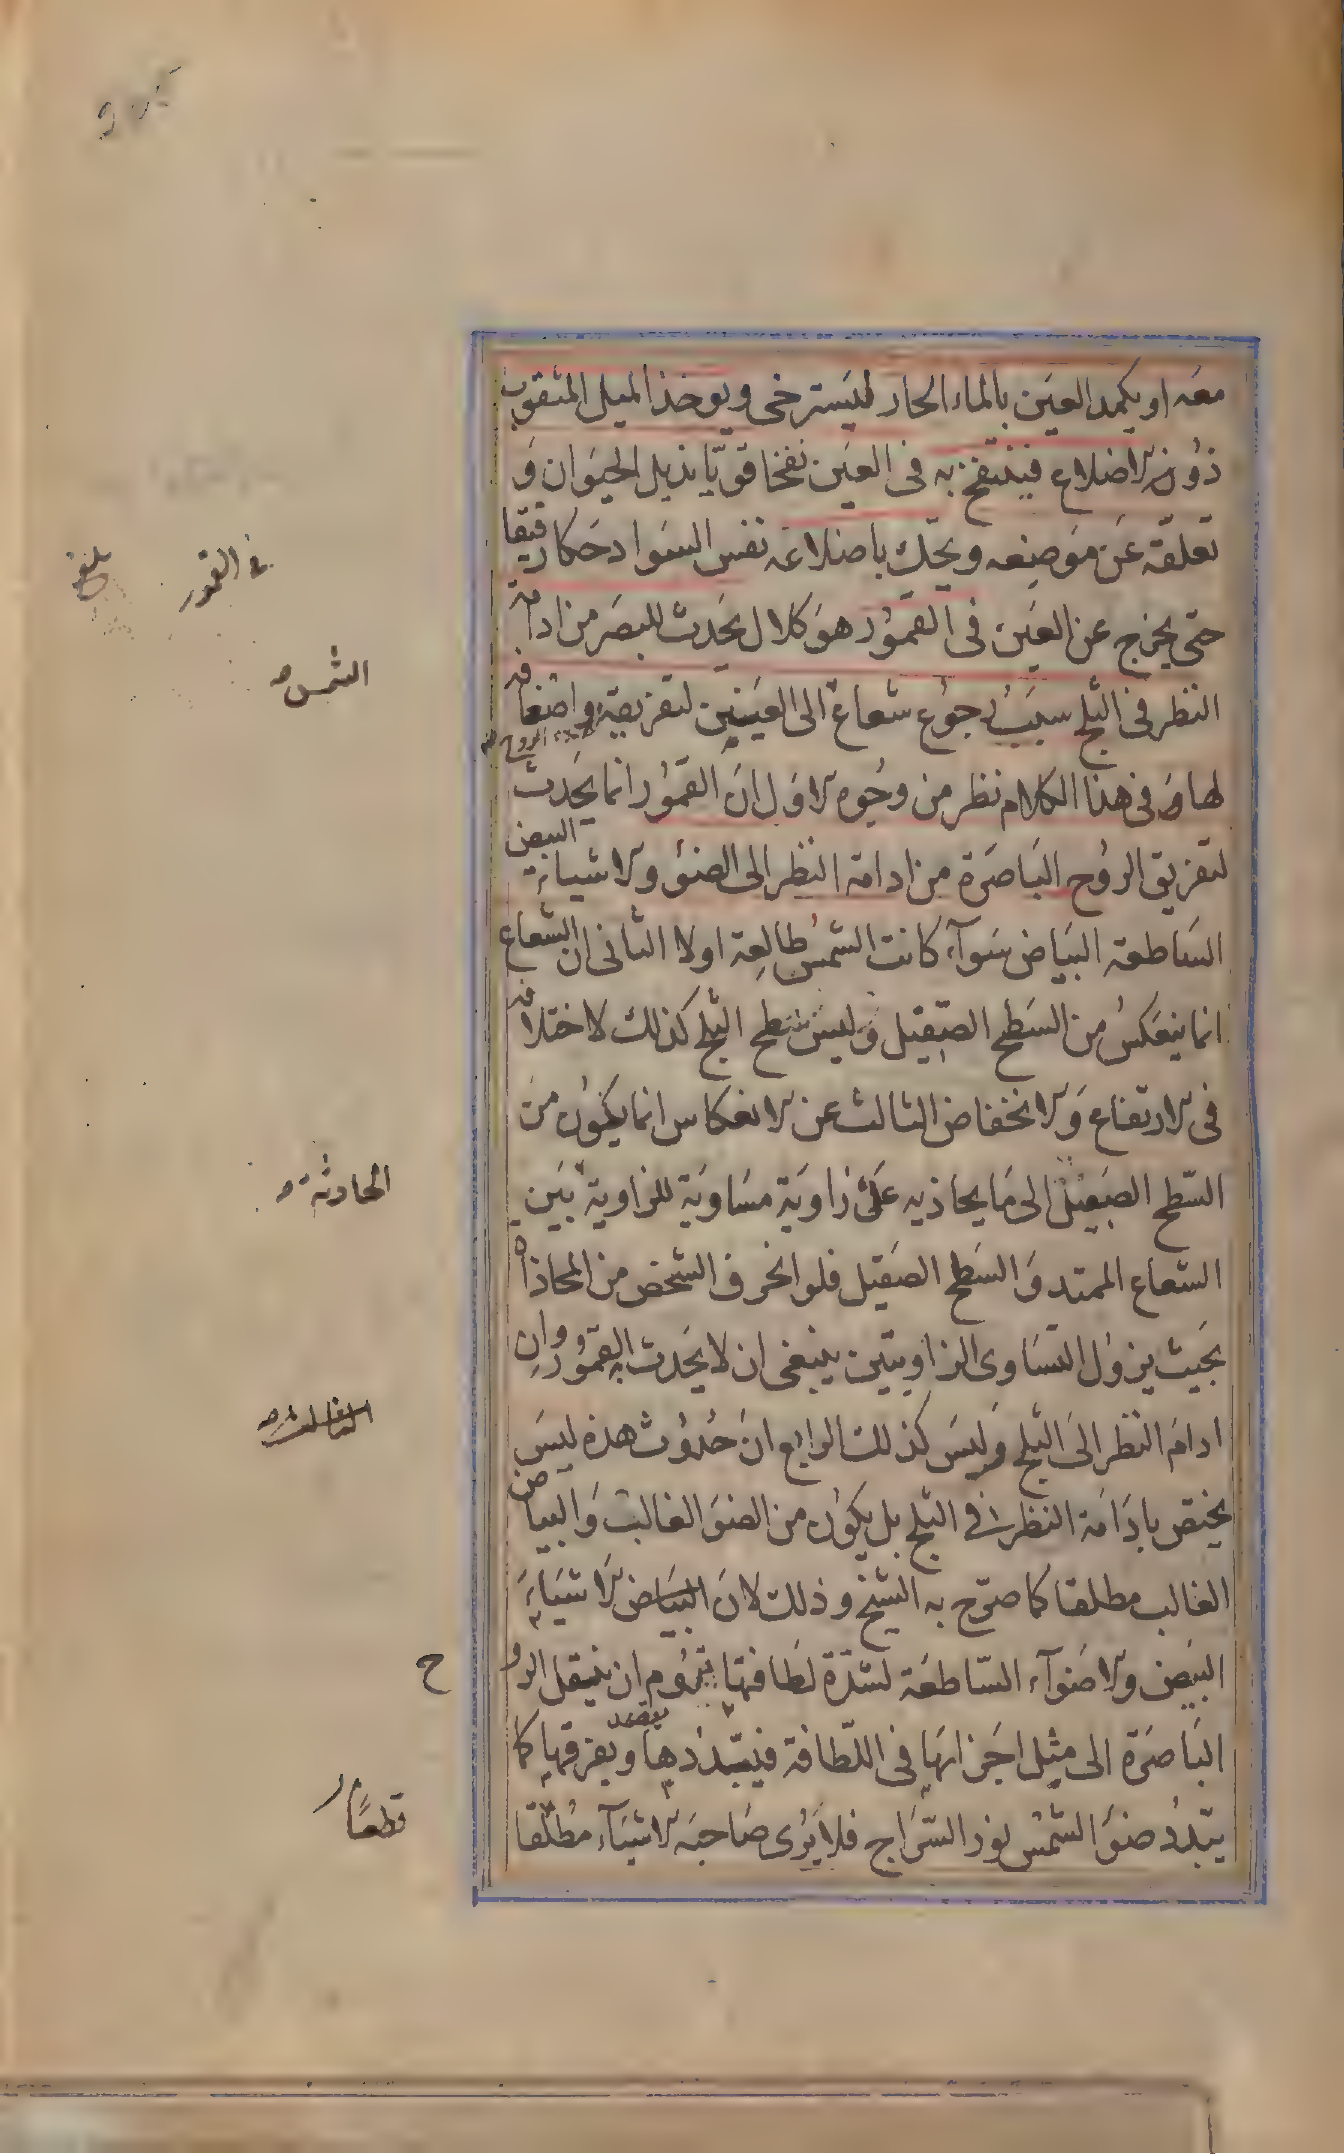 معه او يكمد العين بالماء الحار ليسترخى ويوخذ الميل المثقوب
ذو الاضلاع فينتفخ به فى العين نفخا قويا يذيل الحيوان و
تعلقه عن موضعه ويحك باضلاعه نفس السواد حكا رقيقا
حتى يخرج عن العين فى القمور هو كلال يحدث للبصر من ادامة
النظر فى الثلج سببه رجوع شعاع الى العينين لتفريقه واضعافه
الروح
لها و فى هذا الكلام نظر من وجوه الاول ان القمور انما يحدث
لتفريق الروح الباصرة من ادامة النظر الى الضوء والاشياء البيض
الساطعة البياض سواء كانت الشمس طالعة اولا الثانى ان الشعاع
انما ينعكس من السطح الصقيل وليس سطح الثلج كذلك لاختلافه
فى الارتفاع والانخفاض الثالث عن الانعكاس انما يكون من
السطح الصقيل الى ما يحاذيه على زاوية مساوية للزاوية بين
الشعاع الممتد والسطح الصقيل فلو انحرف الشخص من المحاذاة
بحيث يزول التساوى الزاويتين ينبغى ان لا يحدث به القمور وان
ادام النظر الى الثلج وليس كذلك الرابع ان حدوث هذه ليس
يختص بادامة النظر فى الثلج بل يكون من الضوء الغالب والبياض
الغالب مطلقا كما صرح به الشيخ وذلك لان البياض الاشياء
البيض والاضواء الساطعة لشدة لطافتها تروم ان ينتقل الرو
الباصرة الى مثل اجزائها فى اللطافة فيبددها ويفرقها كما
يبدد ضوء الشمس نور السراج فلا يرى صاحبه الاشياء مطلقا
فى القمور
بلغ
الشمس
الحادثة
ح
قطعا